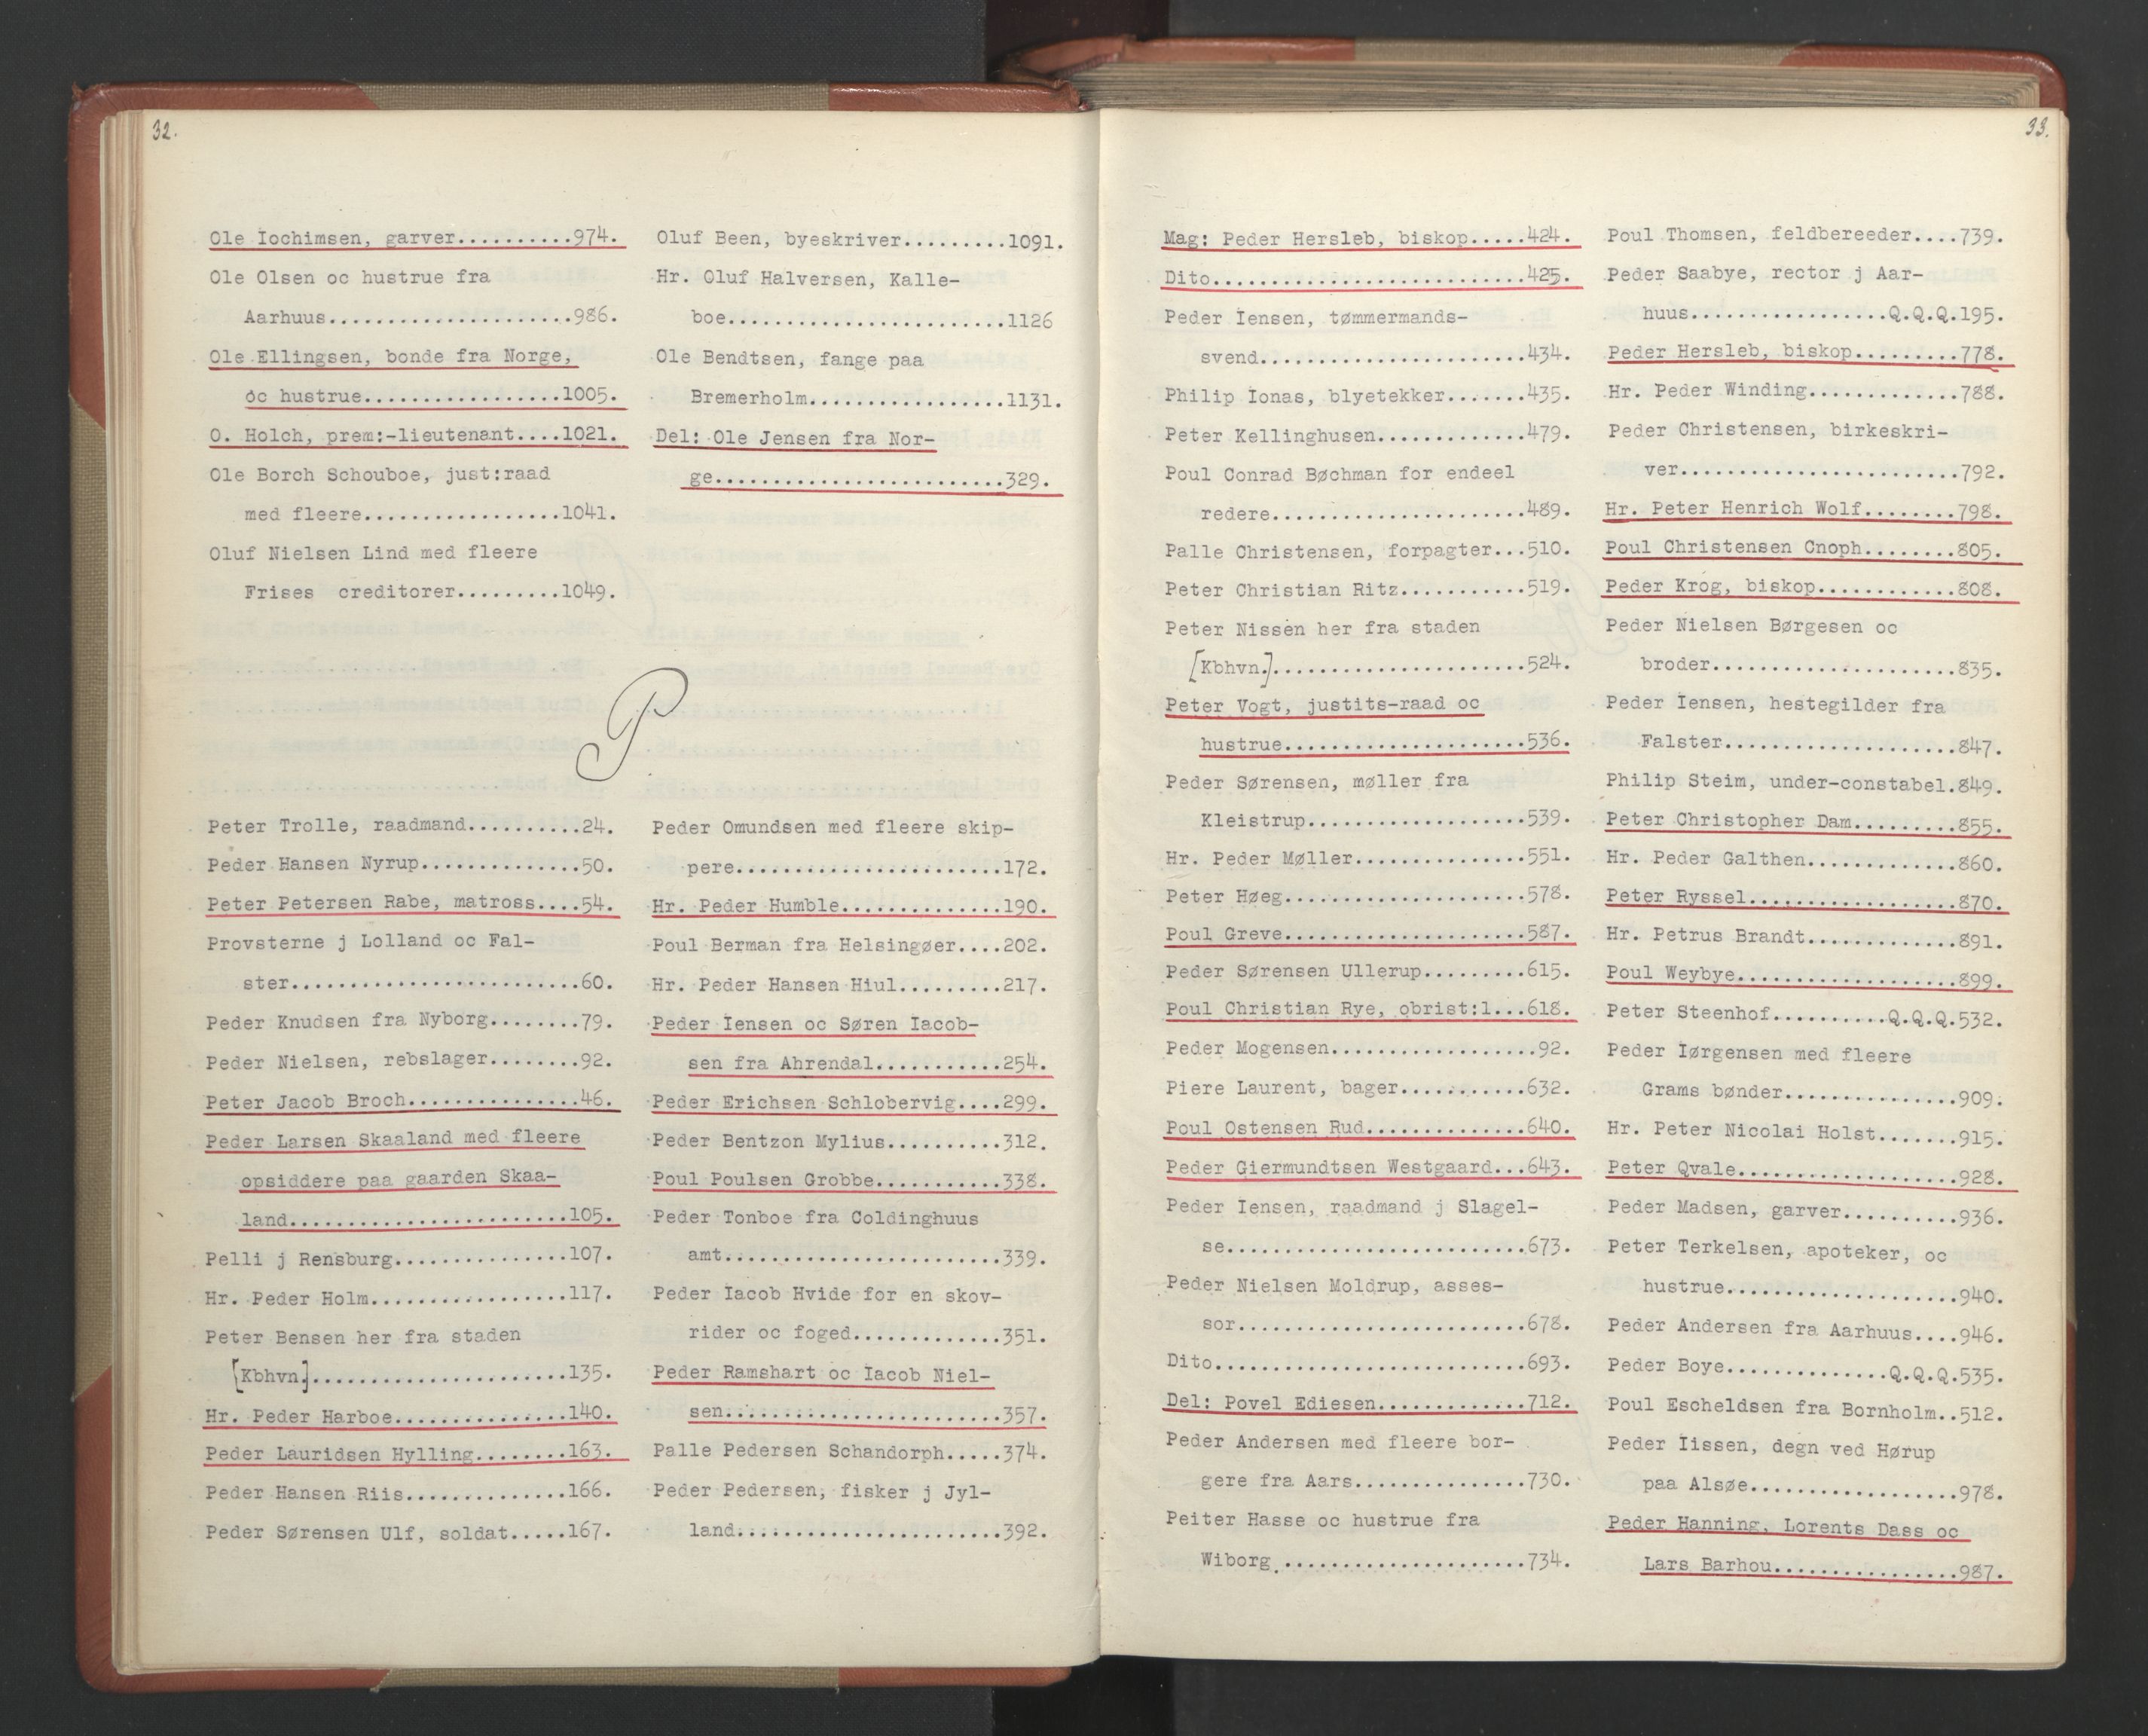 32.
Ole Iochimsen, garver..........974.
Ole Olsen oc hustrue fra
Aarhuus.....................986.
Ole Ellingsen, bonde fra Norge,
oc hustrue.................1005.
O. Holch, prem:-lieutenant....1021.
Ole Borch Schouboe, just:raad
med fleere.................1041.
Oluf Nielsen Lind med fleere
Frises creditorer.........1049.
Oluf Been, byeskriver.........1091.
Hr. Oluf Halversen, Kalle-
boe........................1126
Ole Bendtsen, fange paa
Bremerholm.................1131.
Del: Ole Jensen fra Nor-
ge.........................329.
P
Peter Trolle, raadmand..........24.
Peder Hansen Nyrup..............50.
Peter Petersen Rabe, matross....54.
Provsterne j Lolland oc Fal-
ster.........................60.
Peder Knudsen fra Nyborg........79.
Peder Nielsen, rebslager........92.
Peter Jacob Broch...............46.
Peder Larsen Skaaland med fleere
opsiddere paa gaarden Skaa-
land........................105.
Pelli j Rensburg...............107.
Hr. Peder Holm.................117.
Peter Bensen her fra staden
[Kbhvn.]......................135.
Hr. Peder Harboe...............140.
Peder Lauridsen Hylling........163.
Peder Hansen Riis..............166.
Peder Sørensen Ulf, soldat.....167.
Peder Omundsen med fleere skip-
pere.......................172.
Hr. Peder Humble..............190.
Poul Berman fra Helsingøer....202.
Hr. Peder Hansen Hiul.........217.
Peder Iensen oc Søren Iacob-
sen fra Ahrendal...........254.
Peder Erichsen Schlobervig....299.
Peder Bentzon Mylius..........312.
Poul Poulsen Grobbe...........338.
Peder Tonboe fra Coldinghuus
amt........................339.
Peder Iacob Hvide for en skov-
rider oc foged.............351.
Peder Ramshart oc Iacob Niel-
sen........................357.
Palle Pedersen Schandorph.....374.
Peder Pedersen, fisker j Jyl-
land.......................392.
33.
Mag: Peder Hersleb, biskop.....424.
Dito...........................425.
Peder Iensen, tømmermands-
svend.......................434.
Philip Ionas, blyetekker.......435.
Peter Kellinghusen.............479.
Poul Conrad Bøchman for endeel
redere......................489.
Palle Christensen, forpagter...510.
Peter Christian Ritz...........519.
Peter Nissen her fra staden
[Kbhvn.]......................524.
Peter Vogt, justits-raad oc
hustrue.....................536.
Peder Sørensen, møller fra
Kleistrup...................539.
Hr. Peder Møller...............551.
Peter Høeg.....................578.
Poul Greve.....................587.
Peder Sørensen Ullerup.........615.
Poul Christian Rye, obrist:l...618.
Peder Mogensen..................92.
Piere Laurent, bager...........632.
Poul Ostensen Rud..............640.
Peder Giermundtsen Westgaard...643.
Peder Iensen, raadmand j Slagel-
se..........................673.
Peder Nielsen Moldrup, asses-
sor.........................678.
Dito...........................693.
Del: Povel Ediesen.............712.
Peder Andersen med fleere bor-
gere fra Aars...............730.
Peiter Hasse oc hustrue fra
Wiborg .....................734.
Poul Thomsen, feldbereeder....739.
Peder Saabye, rector j Aar-
huus.................Q.Q.Q.195.
Peder Hersleb, biskop.........778.
Hr. Peder Winding.............788.
Peder Christensen, birkeskri-
ver........................792.
Hr. Peter Henrich Wolf........798.
Poul Christensen Cnoph........805.
Peder Krog, biskop............808.
Peder Nielsen Børgesen oc
broder.....................835.
Peder Iensen, hestegilder fra
Falster....................847.
Philip Steim, under-constabel.849.
Peter Christopher Dam.........855.
Hr. Peder Galthen.............860.
Peter Ryssel..................870.
Hr. Petrus Brandt.............891.
Poul Weybye...................899.
Peter Steenhof..........Q.Q.Q.532.
Peder Iørgensen med fleere
Grams bønder...............909.
Hr. Peter Nicolai Holst.......915.
Peter Qvale...................928.
Peder Madsen, garver..........936.
Peter Terkelsen, apoteker, oc
hustrue....................940.
Peder Andersen fra Aarhuus....946.
Peder Boye..............Q.Q.Q.535.
Poul Escheldsen fra Bornholm..512.
Peder Iissen, degn ved Hørup
paa Alsøe..................978.
Peder Hanning, Lorents Dass oc
Lars Barhou................987.